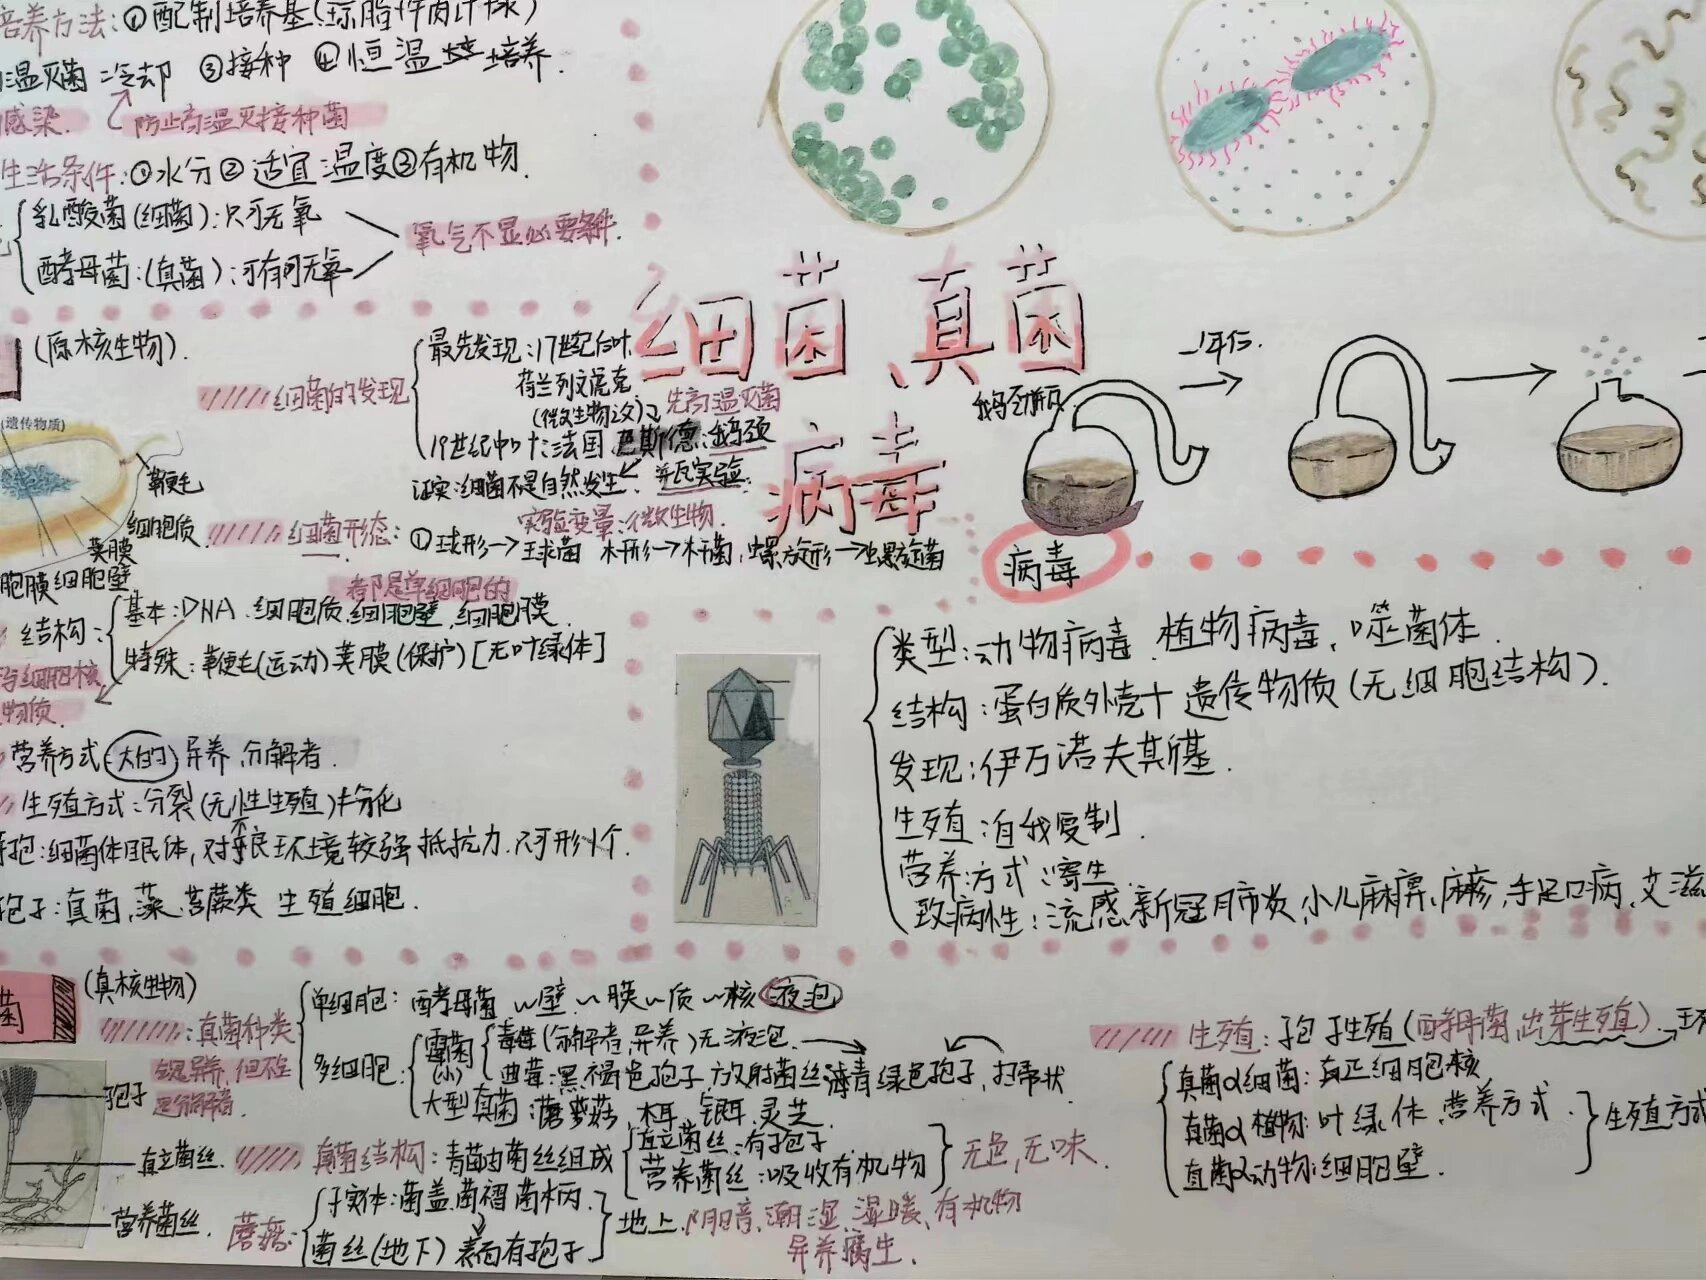 培养方法:①配制培养基(琼脂+牛肉汁球)
温灭菌 冷却 ③接种 ④恒温 培养.
感染. 防止高温灭接种菌
生活条件:①水分②适宜温度③有机物.
乳酸菌(细菌):只可无氧
酵母菌:(真菌):可有可无氧
氧气不是必要条件.
细菌、真菌
病毒
(原核生物).
细菌的发现
最先发现:17世纪后叶.
荷兰列文虎克
(微生物之父)
先高温灭菌
19世纪中叶:法国 巴斯德:鹅颈
证实:细菌不是自然发生. 瓶实验.
实验变量:微生物.
(遗传物质)
鞭毛
细胞质.
荚膜
胞膜细胞壁
细菌形态:①球形→球菌 杆形→杆菌,螺旋形→螺旋菌
都是单细胞的
结构:
基本:DNA.细胞质.细胞壁.细胞膜.
特殊:鞭毛(运动)荚膜(保护)[无叶绿体]
与细胞核
物质.
营养方式(大的)异养.分解者.
生殖方式:分裂(无性生殖)
芽孢:细菌休眠体,对不良环境较强抵抗力.只可形1个.
孢子:真菌、藻、苔藓类 生殖细胞.
鹅颈瓶
病毒
类型:动物病毒、植物病毒、噬菌体.
结构:蛋白质外壳+遗传物质(无细胞结构).
发现:伊万诺夫斯基.
生殖:自我复制.
营养方式:寄生.
致病性:流感,新冠肺炎,小儿麻痹、麻疹,手足口病,艾滋
菌
(真核生物)
真菌种类
全是异养,但不
是分解者.
单细胞:酵母菌 ~壁~膜~质~核 液泡
多细胞:
霉菌
(小)
青霉(分解者,异养)无液泡.
曲霉:黑、褐色孢子,放射菌丝 青绿色孢子,扫帚状
大型真菌:蘑菇,木耳,银耳,灵芝.
孢子
直立菌丝.
营养菌丝.
真菌结构:青霉由菌丝组成
直立菌丝:有孢子
营养菌丝:吸收有机物
无色,无味.
蘑菇:
子实体:菌盖菌褶菌柄.
菌丝(地下) 表面有孢子
地上.阴暗,潮湿,温暖,有机物
异养腐生.
生殖:孢子生殖(酵母菌,出芽生殖).
真菌α细菌:真正细胞核.
真菌α植物:叶绿体.营养方式.
真菌α动物:细胞壁.
生殖方式